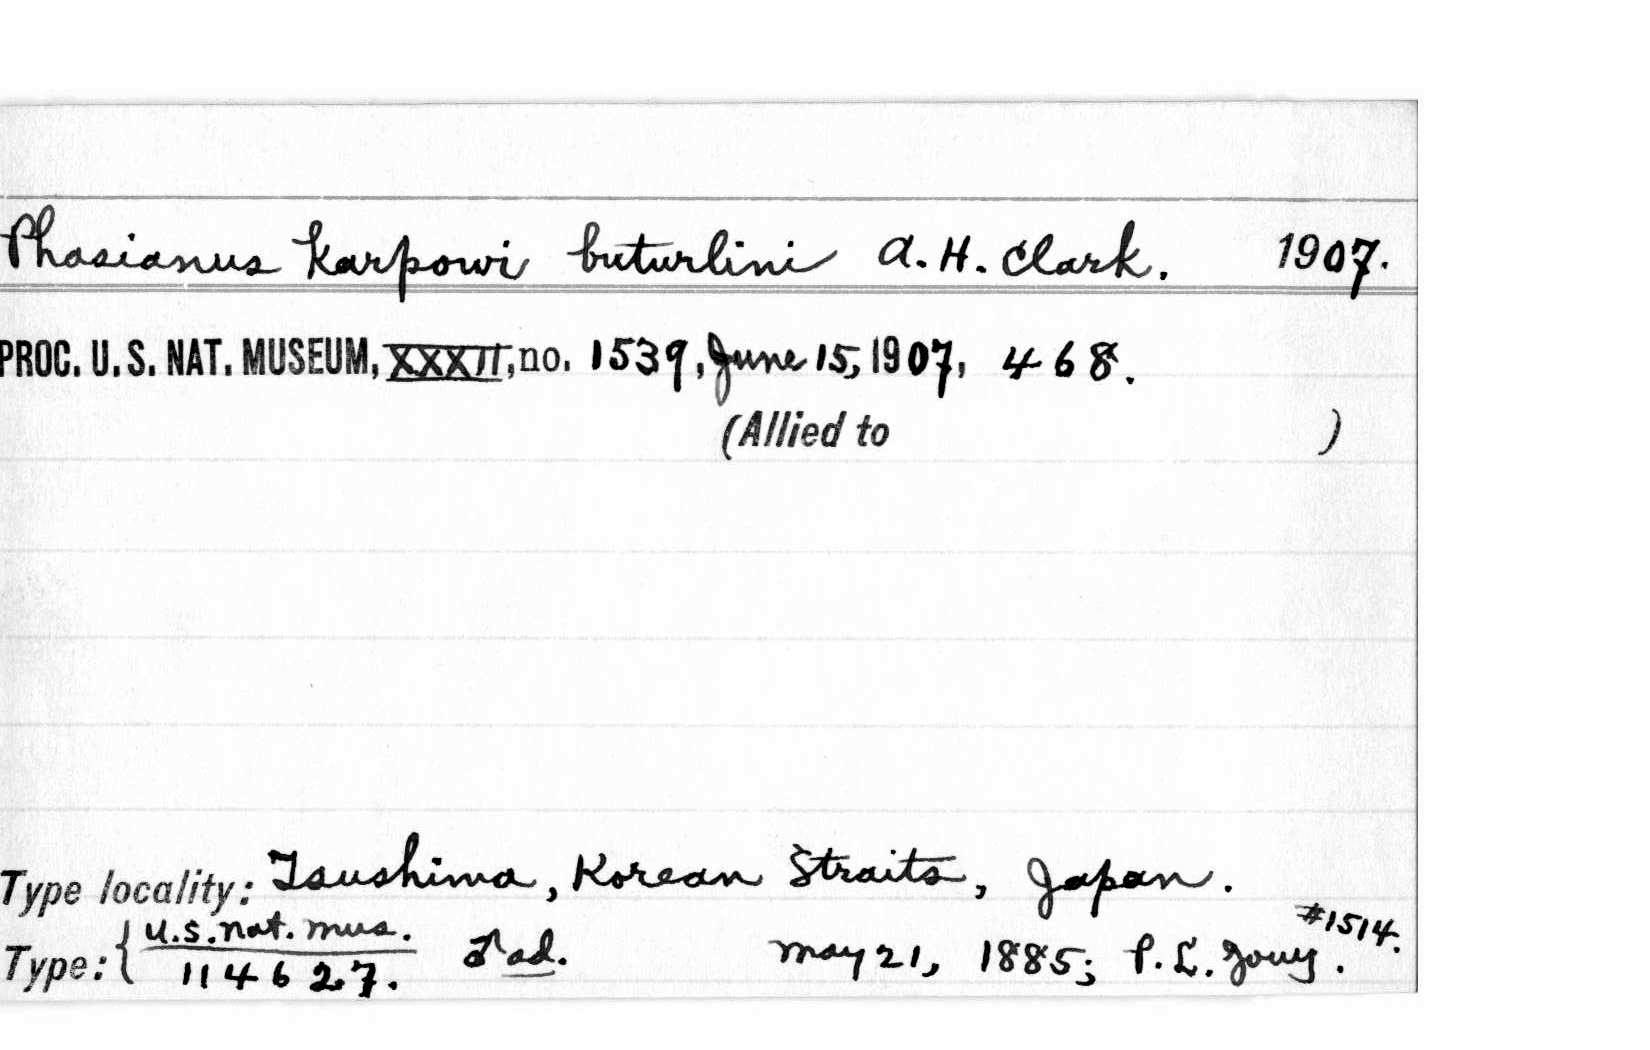 Phasianus karpowi buturlini A. H. Clark. 1907.
PROC. U. S. NAT. MUSEUM, XXXII, no. 1539, June 15, 1907, 468.
(Allied to )
Type locality: Tsushima, Korean Straits, Japan.
#1514.
Type: { U.S. Nat. Mus. ♂ ad. May 21, 1885; P. L. Jouy.
114627.